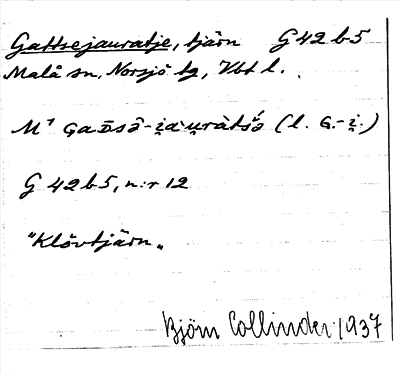 Gattsejauratje, tjärn G 42 b 5
Malå sn, Norsjö tg, Vbt l.
G 42 b 5, n:r 12
"Klövtjärn"
Björn Collinder 1937